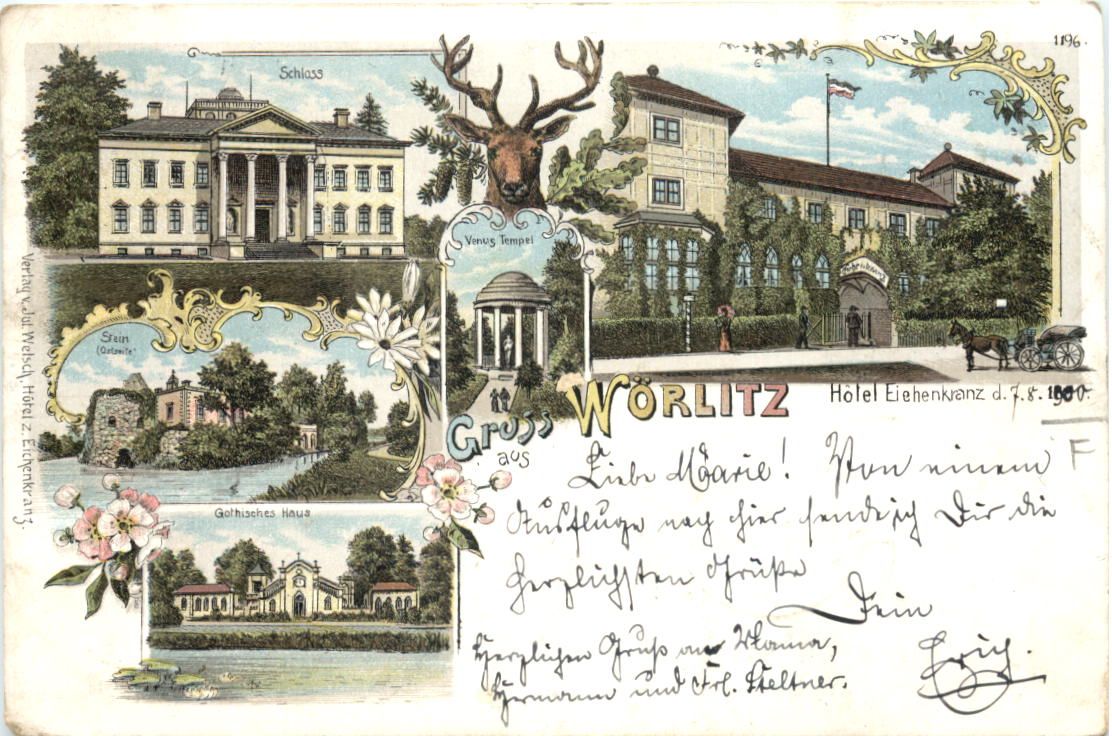 1196.
Schloss
Venus Tempel
Stein
(Ostseite)
Gothisches Haus
Verlag v. Jul. Welsch, Hôtel z. Eichenkranz.
Gruss
aus
WÖRLITZ
Hôtel Eichenkranz d. 7. 8. 1900.
F
Liebe Marie! Von einem
Ausfluge nach hier sende ich Dir die
herzlichsten Grüße
Dein
Erich.
Herzlichen Gruß an Mama,
Hermann und Frl. Steltner.